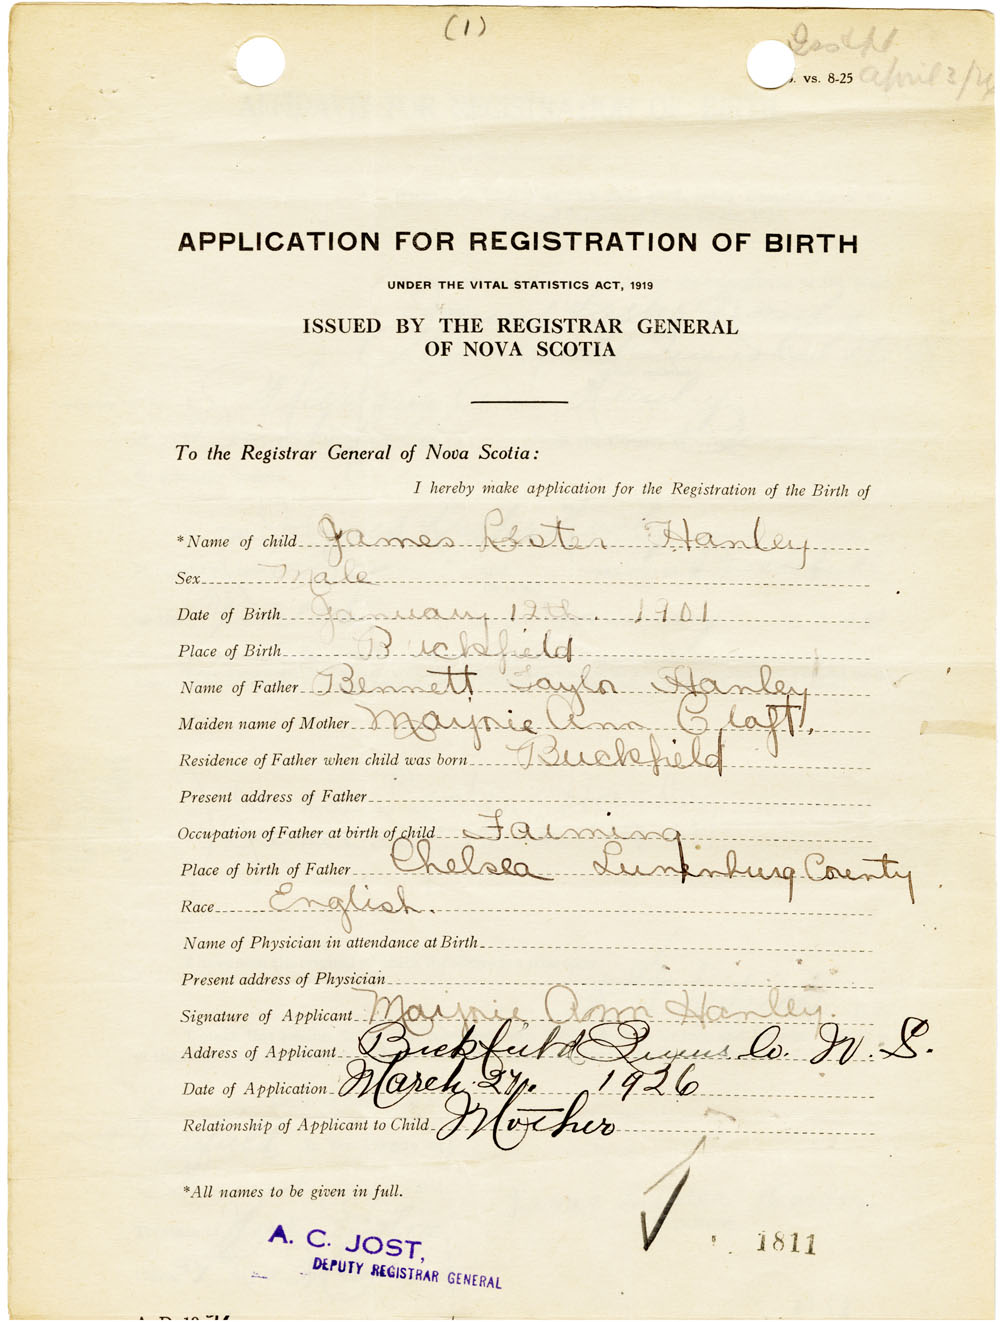 (1)
vs. 8-25
April 3/26
APPLICATION FOR REGISTRATION OF BIRTH
UNDER THE VITAL STATISTICS ACT, 1919
ISSUED BY THE REGISTRAR GENERAL
OF NOVA SCOTIA
To the Registrar General of Nova Scotia:
I hereby make application for the Registration of the Birth of
*Name of child James Lester Hanley
Sex Male
Date of Birth January 12th. 1901
Place of Birth Buckfield
Name of Father Bennett Taylor Hanley
Maiden name of Mother Marjorie Ann Croft.
Residence of Father when child was born Buckfield
Present address of Father
Occupation of Father at birth of child Farming
Place of birth of Father Chelsea Lunenburg County
Race English.
Name of Physician in attendance at Birth
Present address of Physician
Signature of Applicant Marjorie Ann Hanley.
Address of Applicant Buckfield Queens Co. N. S.
Date of Application March 27. 1926
Relationship of Applicant to Child Mother
*All names to be given in full.
A. C. JOST,
DEPUTY REGISTRAR GENERAL
1811